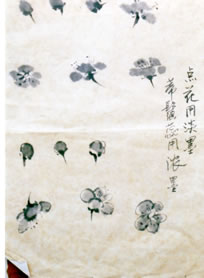 点花用淡墨
蒂鬚蕊用浓墨